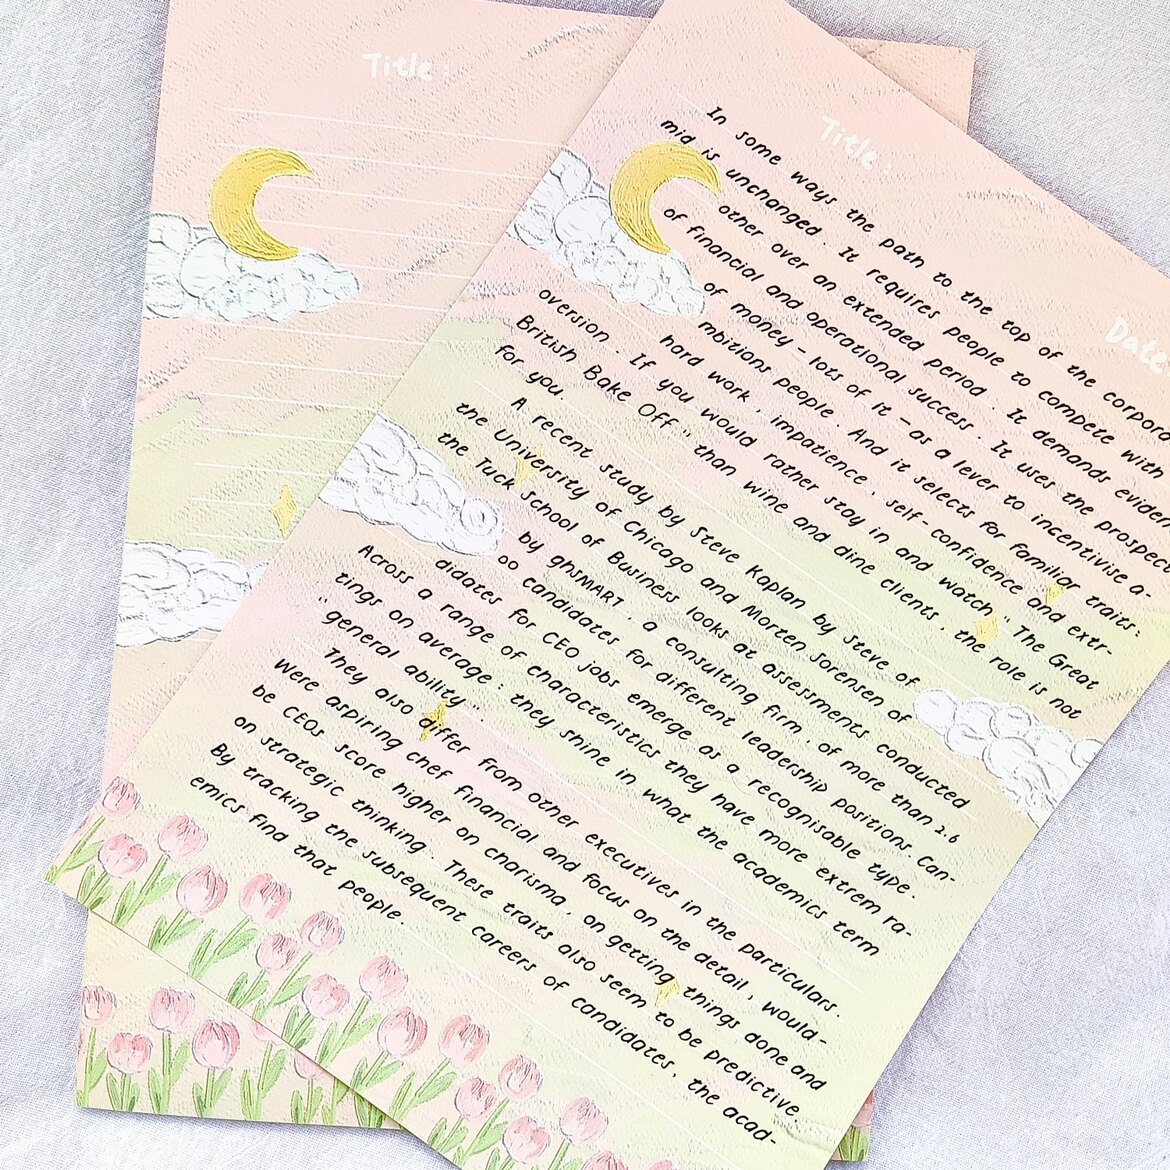 Title :
Title :
Date:
In some ways the path to the top of the corpora
mid is unchanged. It requires people to compete with
other over an extended period. It demands eviden
of financial and operational success. It uses the prospect
of money - lots of it - as a lever to incentivise a-
mbitions people. And it selects for familiar traits:
hard work, impatience, self-confidence and extr-
oversion. If you would rather stay in and watch "The Great
British Bake Off" than wine and dine clients, the role is not
for you.
A recent study by Steve Kaplan by Steve of
the University of Chicago and Morten Sorensen of
the Tuck School of Business looks at assessments conducted
by ghSMART, a consulting firm, of more than 2.6
00 candidates for different leadership positions. Can-
didates for CEO jobs emerge as a recognisable type.
Across a range of characteristics they have more extrem ra-
tings on average: they shine in what the academics term
"general ability".
They also differ from other executives in the particulars.
Were aspiring chef financial and focus on the detail, would-
be CEOs score higher on charisma, on getting things done and
on strategic thinking. These traits also seem to be predictive
By tracking the subsequent careers of candidates, the acad-
emics find that people.